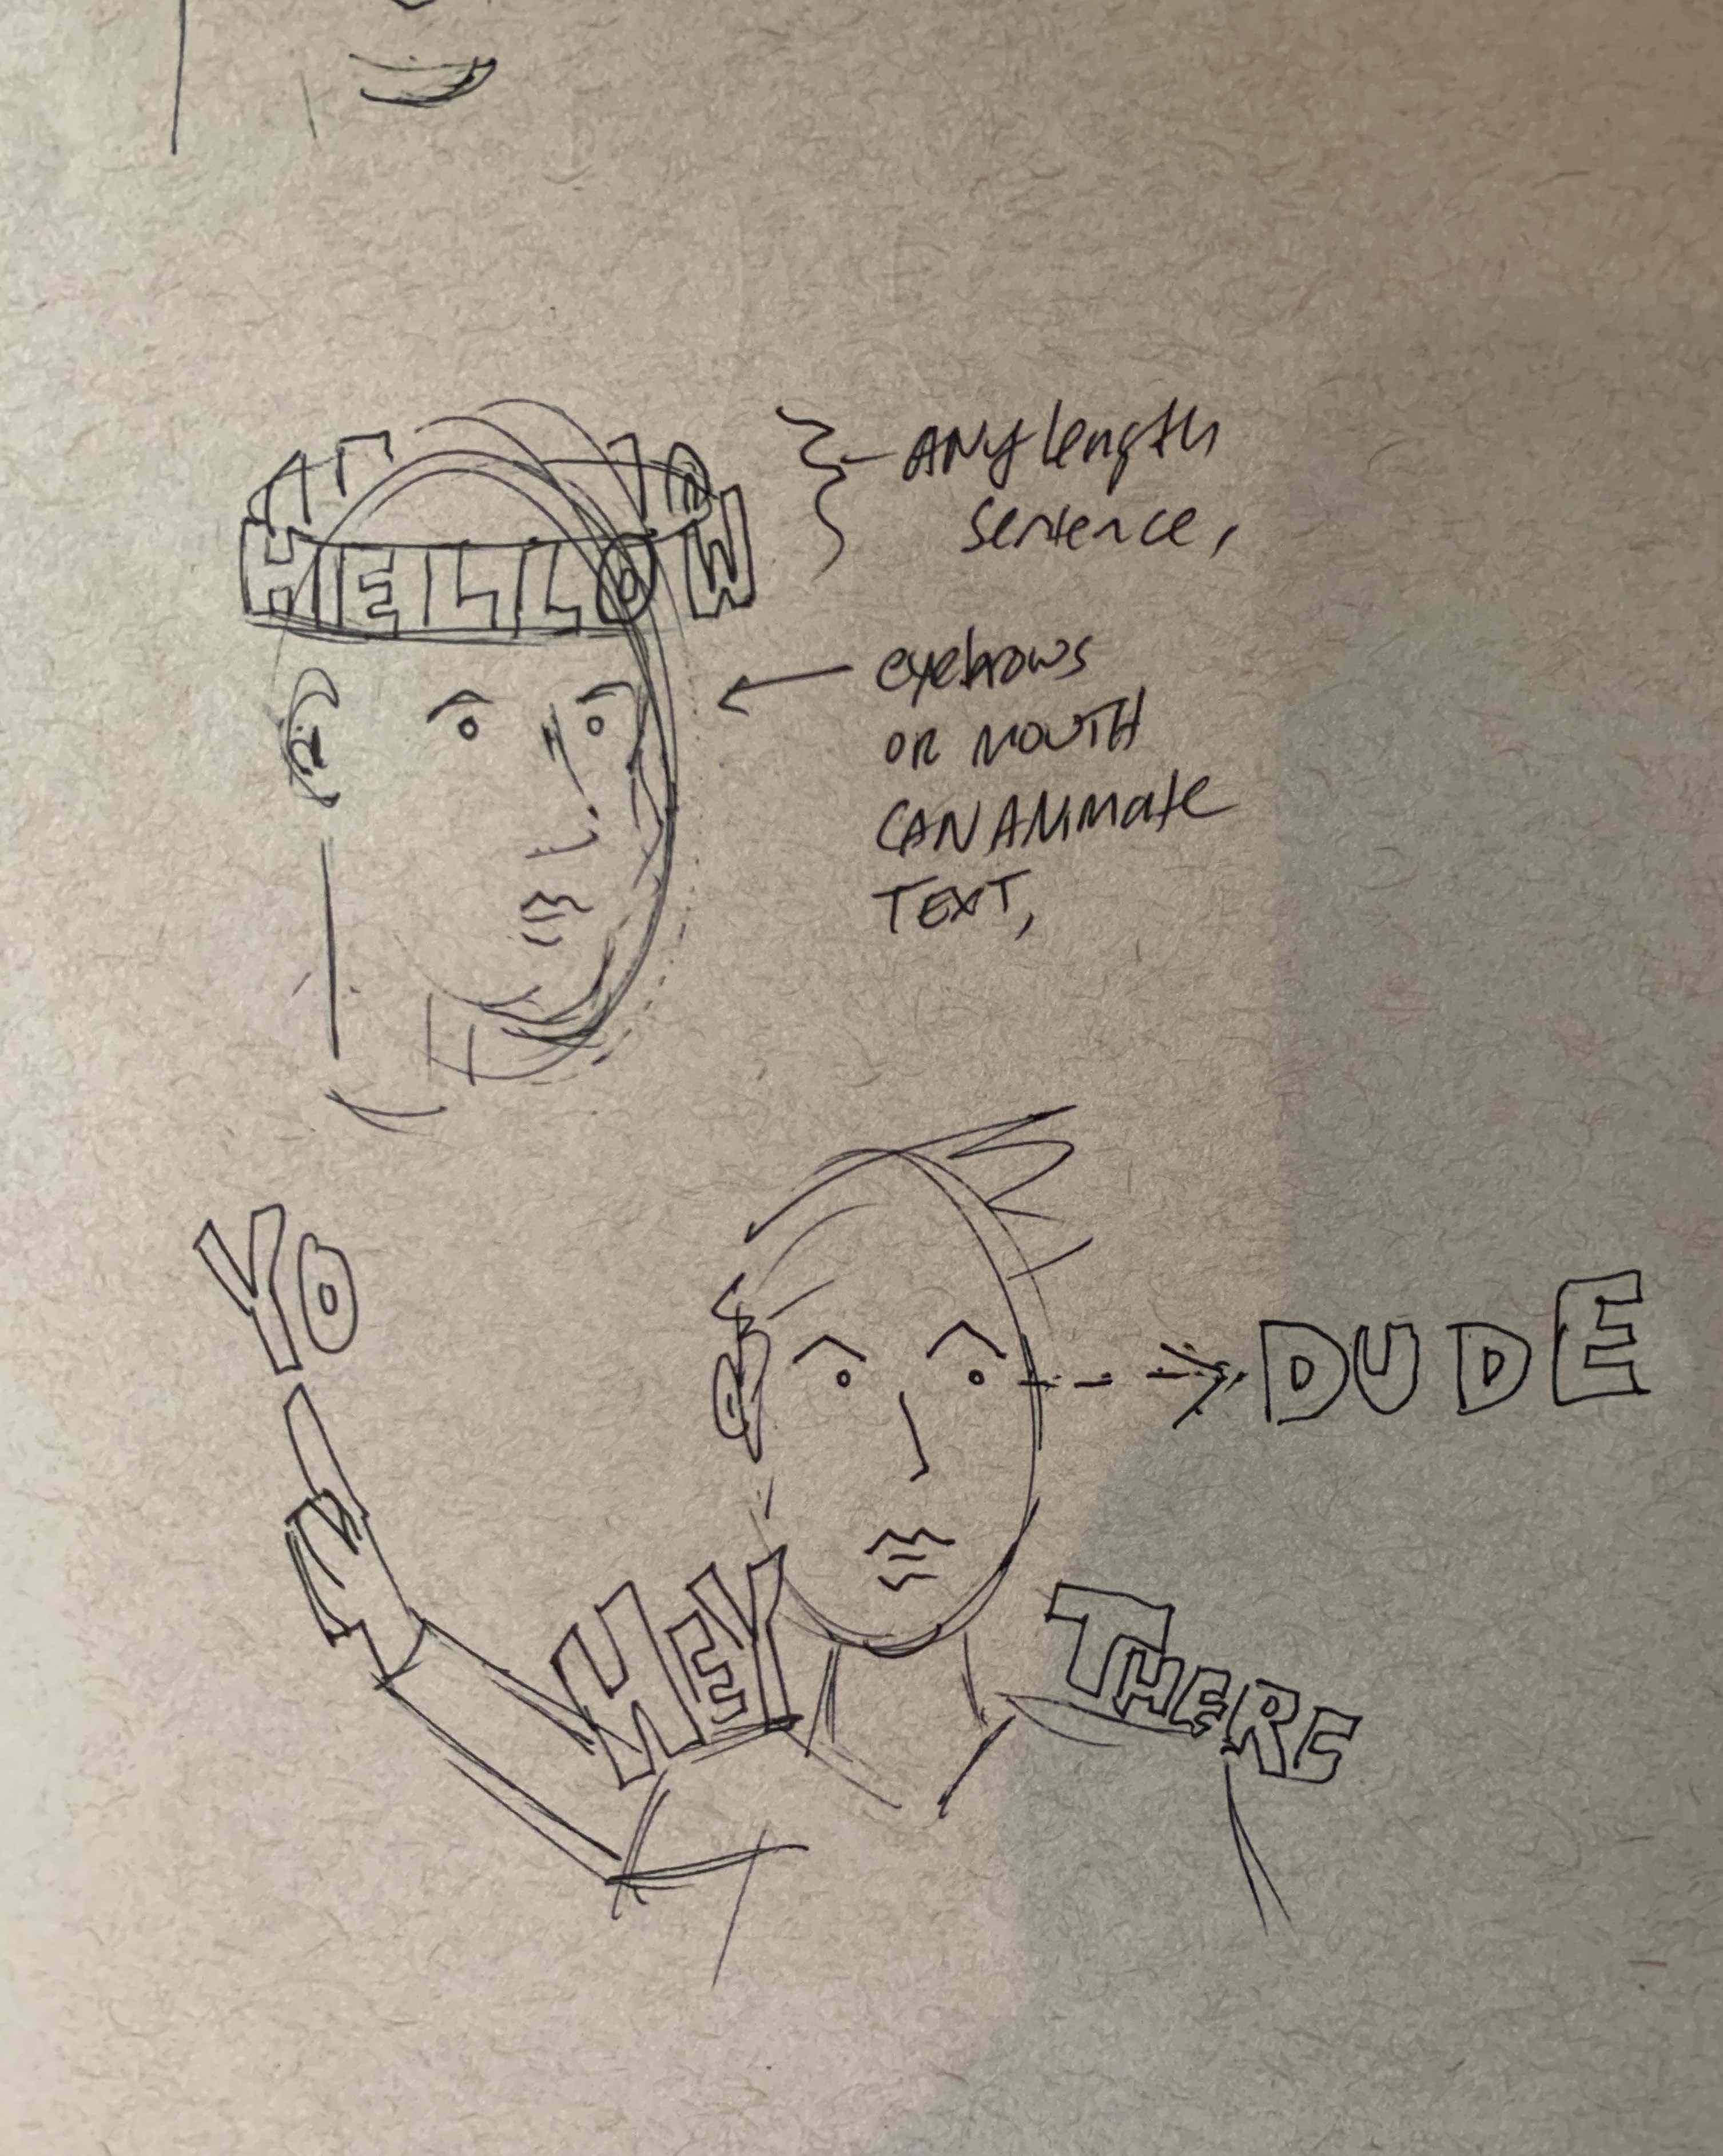 HELLOW
ANY length
sentence,
eyebrows
OR MOUTH
CAN ANIMATE
TEXT,
YO
DUDE
HEY
THERE